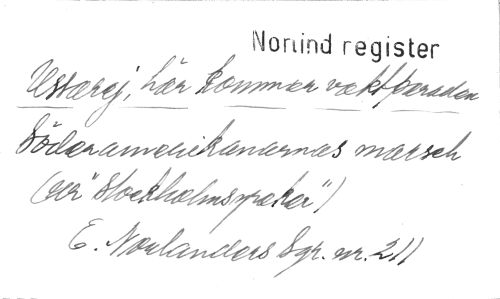 Norlind register
Ussarej, här kommer vaktparaden
Söderamerikanarnas marsch
(ur "Stockholmsspeker")
E. Norlanders Sgr. nr. 211